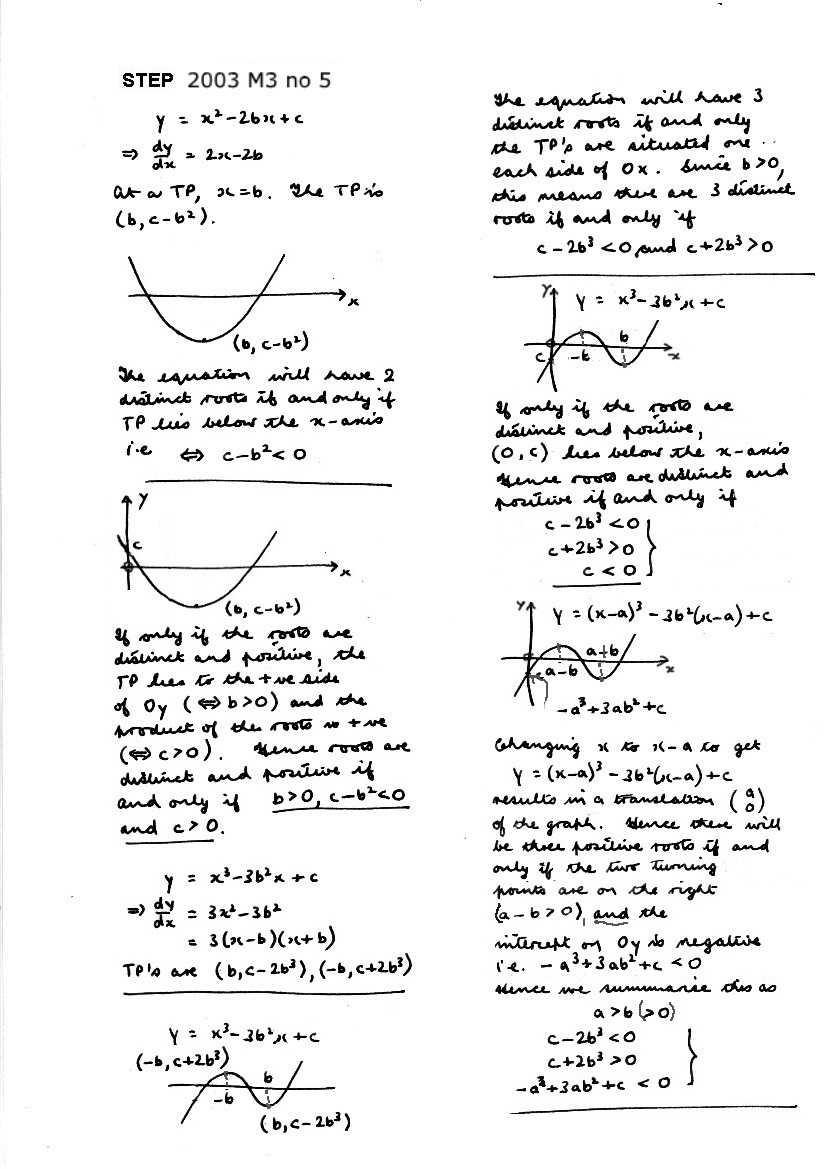 STEP 2003 M3 no 5
y = x² - 2bx + c
⇒ dy/dx = 2x - 2b
At a TP, x = b. The TP is
(b, c - b²).
x
(b, c - b²)
The equation will have 2
distinct roots if and only if
TP lies below the x-axis
i.e ⇔ c - b² < 0
y
c
x
(b, c - b²)
If only if the roots are
distinct and positive, the
TP lies to the +ve side
of Oy (⇔ b > 0) and the
product of the roots is +ve
(⇔ c > 0). Hence roots are
distinct and positive if
and only if b > 0, c - b² < 0
and c > 0.
y = x³ - 3b²x + c
⇒ dy/dx = 3x² - 3b²
= 3(x - b)(x + b)
TP's are (b, c - 2b³), (-b, c + 2b³)
y = x³ - 3b²x + c
(-b, c + 2b³)
b
-b
(b, c - 2b³)
The equation will have 3
distinct roots if and only
the TP's are situated one
each side of Ox. Since b > 0,
this means there are 3 distinct
roots if and only if
c - 2b³ < 0 and c + 2b³ > 0
y
y = x³ - 3b²x + c
b
c
-b
x
If only if the roots are
distinct and positive,
(0, c) lies below the x-axis
Hence roots are distinct and
positive if and only if
c - 2b³ < 0
c + 2b³ > 0
c < 0
y
y = (x - a)³ - 3b²(x - a) + c
a+b
a-b
x
-a³ + 3ab² + c
Changing x to x - a to get
y = (x - a)³ - 3b²(x - a) + c
results in a translation (a 0)
of the graph. Hence there will
be three positive roots if and
only if the two turning
points are on the right
(a - b > 0), and the
intercept on Oy is negative
i.e. -a³ + 3ab² + c < 0
Hence we summarise this as
a > b (> 0)
c - 2b³ < 0
c + 2b³ > 0
-a³ + 3ab² + c < 0